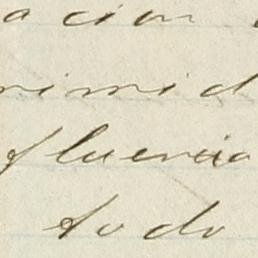 acion
rimid
fluencia
todo